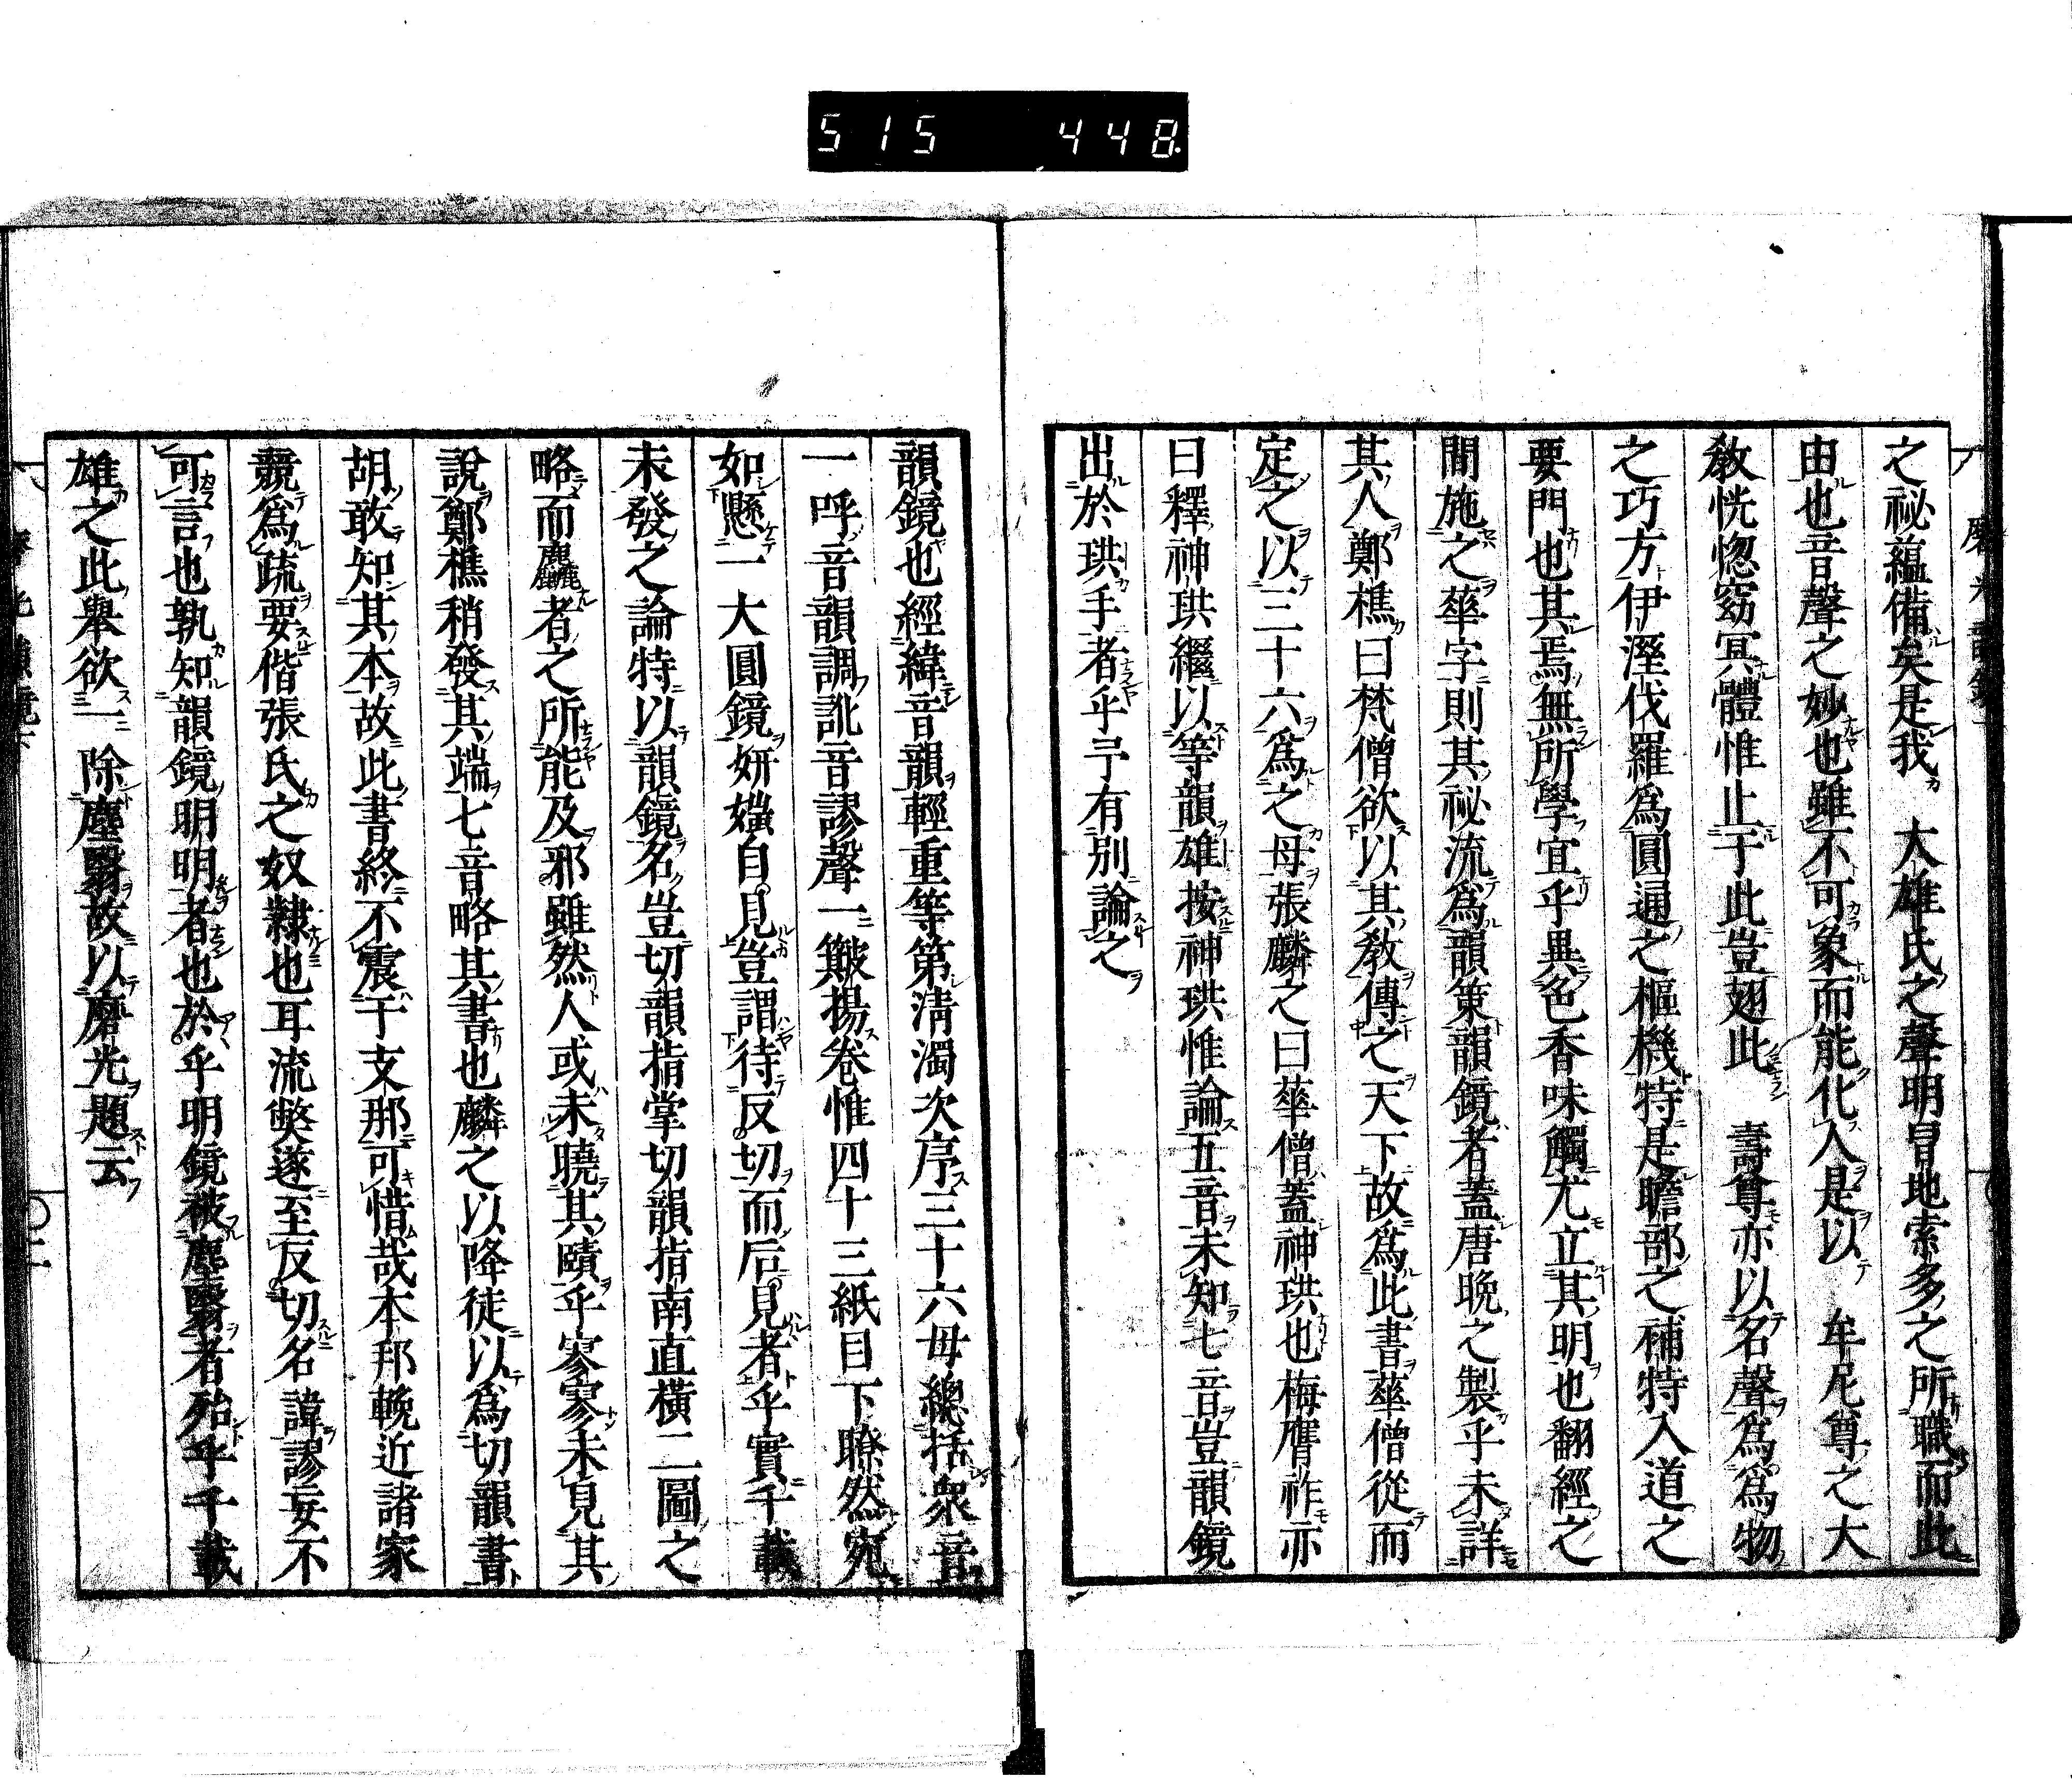 515 448
之祕蘊備矣是我 大雄氏之聲明冒地索多之所職而此
由也音聲之妙也雖不可象而能化人是以 牟尼尊之大
敎恍惚窈冥體惟止于此豈翅此 壽尊亦以名聲爲爲物
之巧方伊溼伐羅爲圓通之樞機特是瞻部之補特入道之
要門也其焉無所學宜乎異色香味觸尤立其明也翻經之
間施之華字則其祕流爲韻策韻鏡者蓋唐晚之製乎未詳
其人鄭樵曰梵僧欲以其敎傳之天下故爲此書華僧從而
定之以三十六爲之母張麟之曰華僧蓋神珙也梅膺祚亦
曰釋神珙繼以等韻雄按神珙惟論五音未知七音豈韻鏡
出於珙手者乎予有別論之
韻鏡也經緯音韻輕重等第淸濁次序三十六母總括衆音
一呼音韻調訛音謬聲一皺揚卷惟四十三紙目下瞭然宛
如懸一大圓鏡妍媸自見豈謂待反切而后見者乎實千載
未發之論特以韻鏡名豈切韻指掌切韻指南直橫二圖之
略而麤者之所能及邪雖然人或未曉其賾乎寥寥未見其
說鄭樵稍發其端七音略其書也麟之以降徒以爲切韻書
胡敢知其本故此書終不震于支那可惜哉本邦輓近諸家
競爲疏要偕張氏之奴隸也耳流獘遂至反切名諱謬妄不
可言也孰知韻鏡明明者也於乎明鏡被塵翳者殆乎千載
雄之此舉欲一除塵翳故以磨光題云